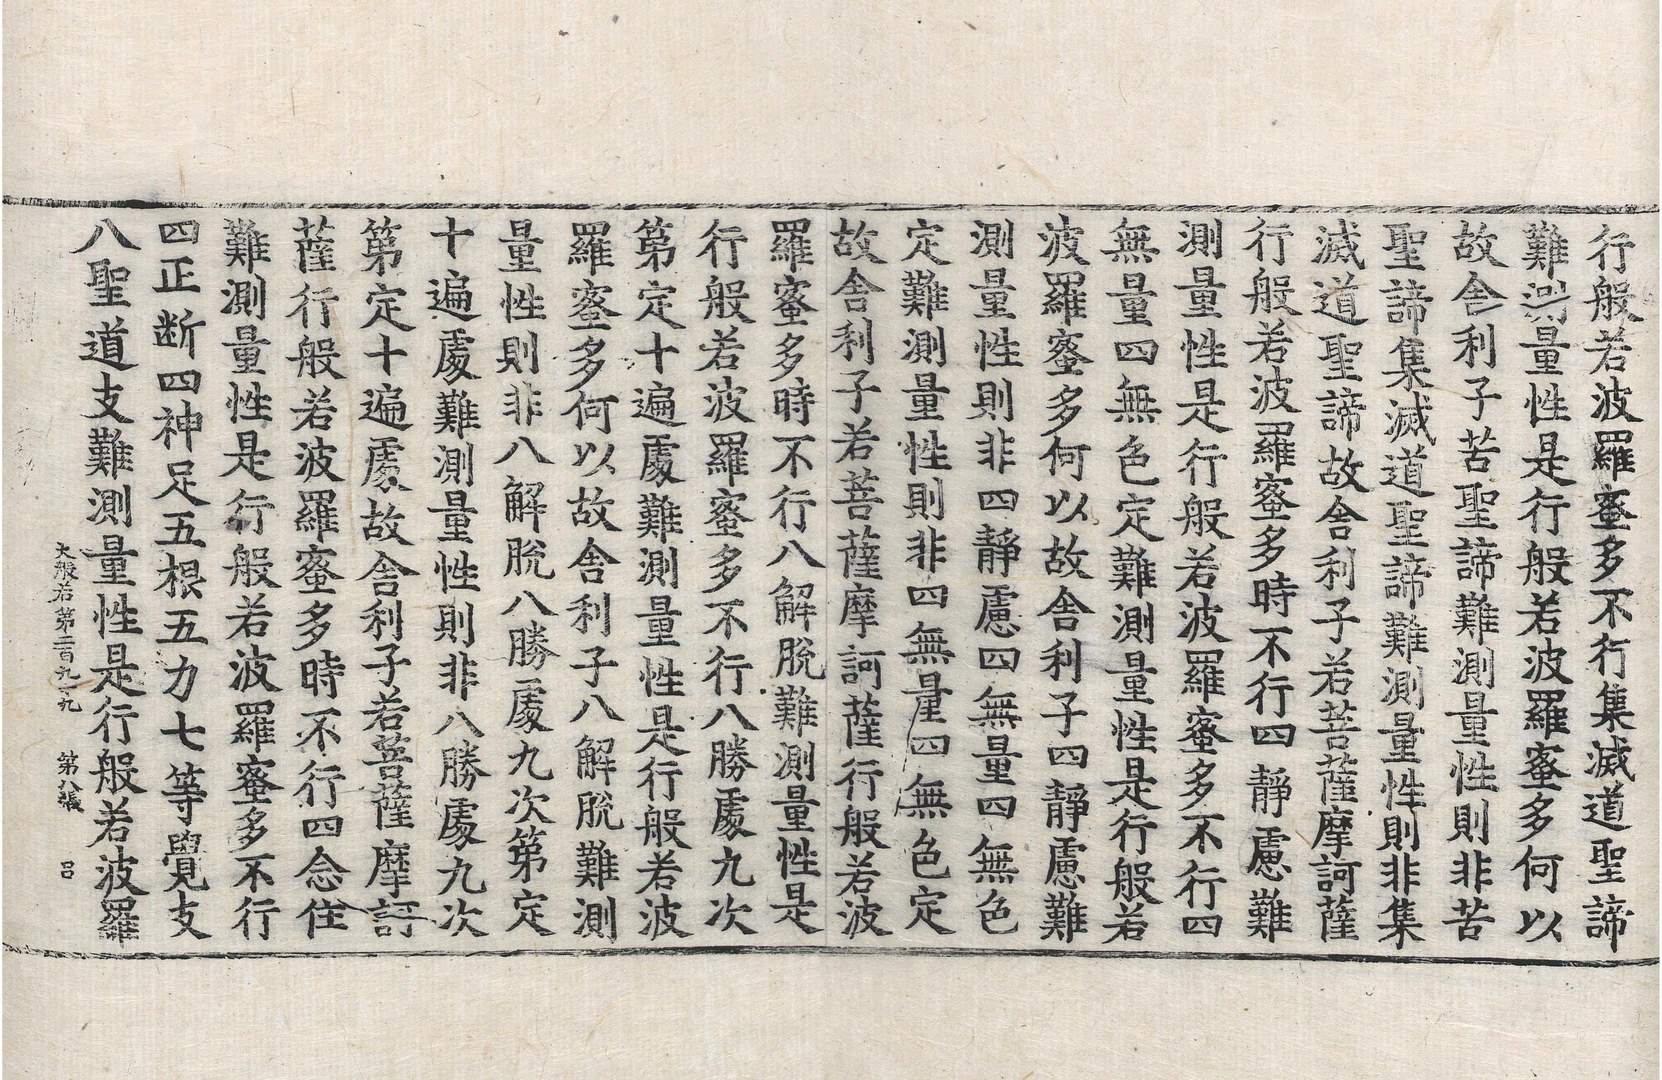 行般若波羅蜜多不行集滅道聖諦
難測量性是行般若波羅蜜多何以
故舍利子苦聖諦難測量性則非苦
聖諦集滅道聖諦難測量性則非集
滅道聖諦故舍利子若菩薩摩訶薩
行般若波羅蜜多時不行四靜慮難
測量性是行般若波羅蜜多不行四
無量四無色定難測量性是行般若
波羅蜜多何以故舍利子四靜慮難
測量性則非四靜慮四無量四無色
定難測量性則非四無量四無色定
故舍利子若菩薩摩訶薩行般若波
羅蜜多時不行八解脫難測量性是
行般若波羅蜜多不行八勝處九次
第定十遍處難測量性是行般若波
羅蜜多何以故舍利子八解脫難測
量性則非八解脫八勝處九次第定
十遍處難測量性則非八勝處九次
第定十遍處故舍利子若菩薩摩訶
薩行般若波羅蜜多時不行四念住
難測量性是行般若波羅蜜多不行
四正断四神足五根五力七等覺支
八聖道支難測量性是行般若波羅
大般若第二百九十九 第八張 呂